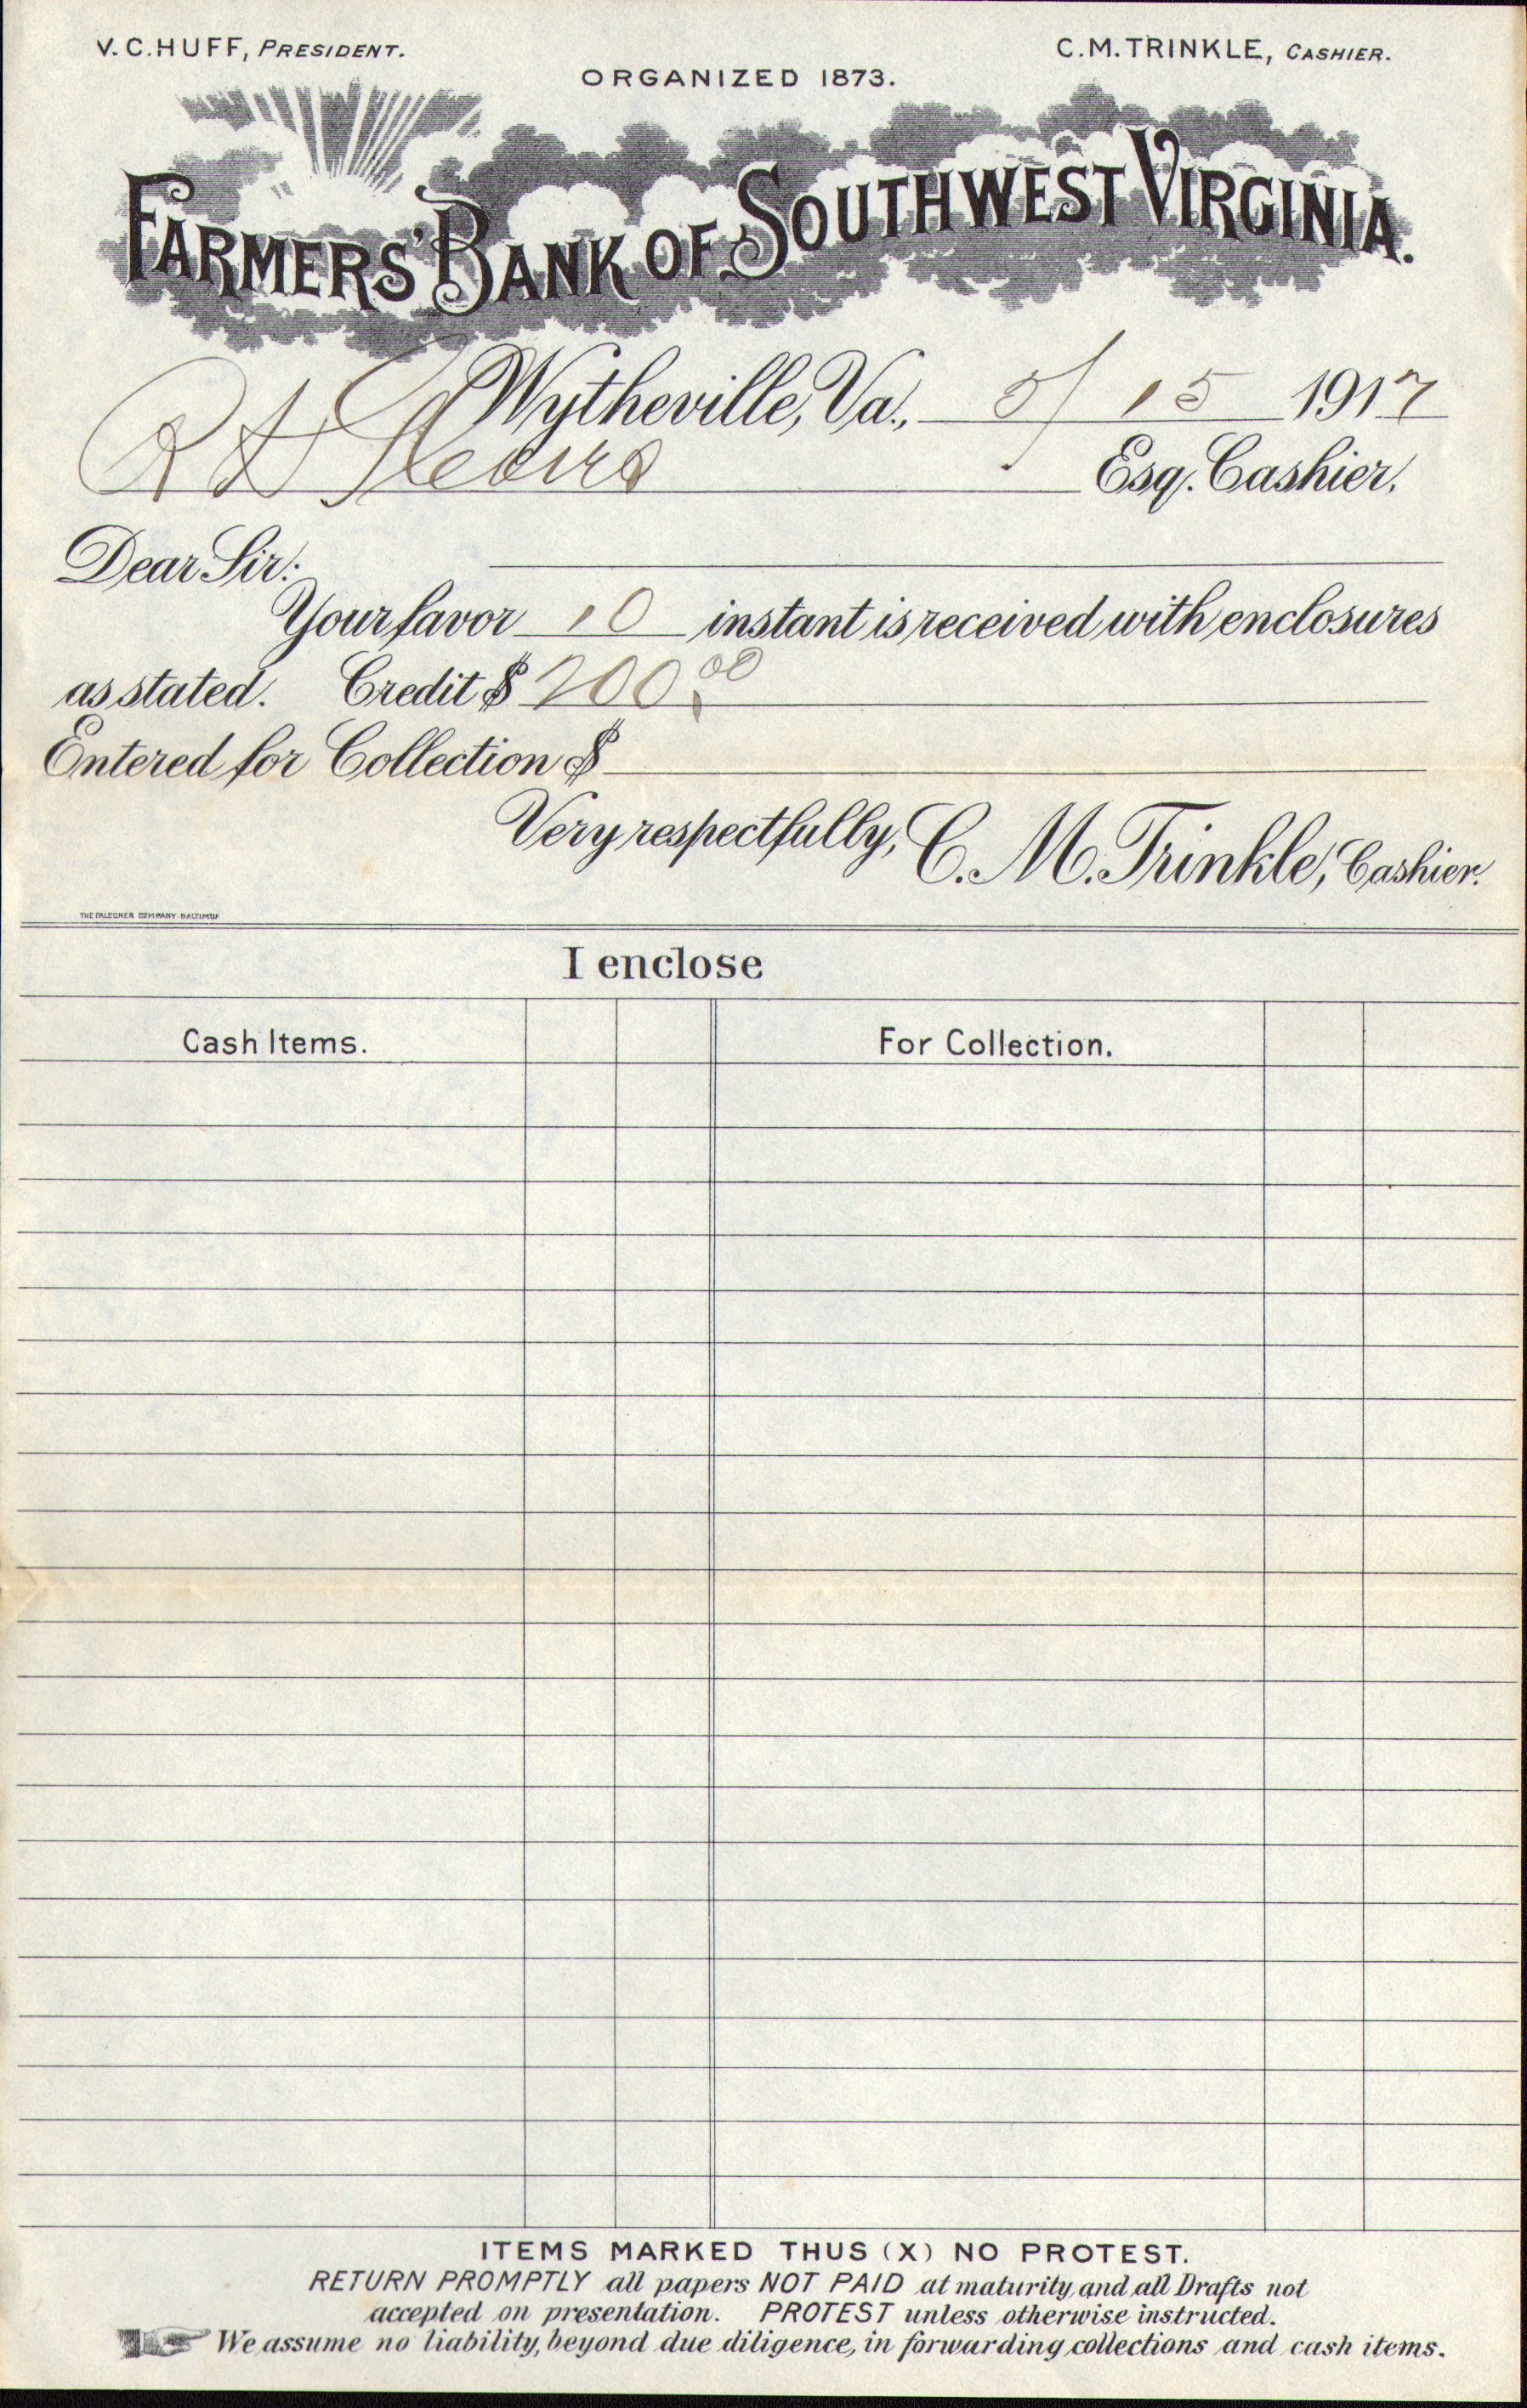 V. C. HUFF, PRESIDENT.
C. M. TRINKLE, CASHIER.
ORGANIZED 1873.
FARMERS' BANK OF SOUTHWEST VIRGINIA.
Wytheville, Va., 5/15 1917
R S Esq. Cashier,
Dear Sir:
Your favor 10 instant is received with enclosures
as stated. Credit $ 200.00
Entered for Collection $
Very respectfully, C. M. Trinkle, Cashier.
THE FALCONER COMPANY-BALTIMOR
I enclose
Cash Items. For Collection.
ITEMS MARKED THUS (X) NO PROTEST.
RETURN PROMPTLY all papers NOT PAID at maturity, and all Drafts not
accepted on presentation. PROTEST unless otherwise instructed.
We assume no liability, beyond due diligence, in forwarding collections and cash items.